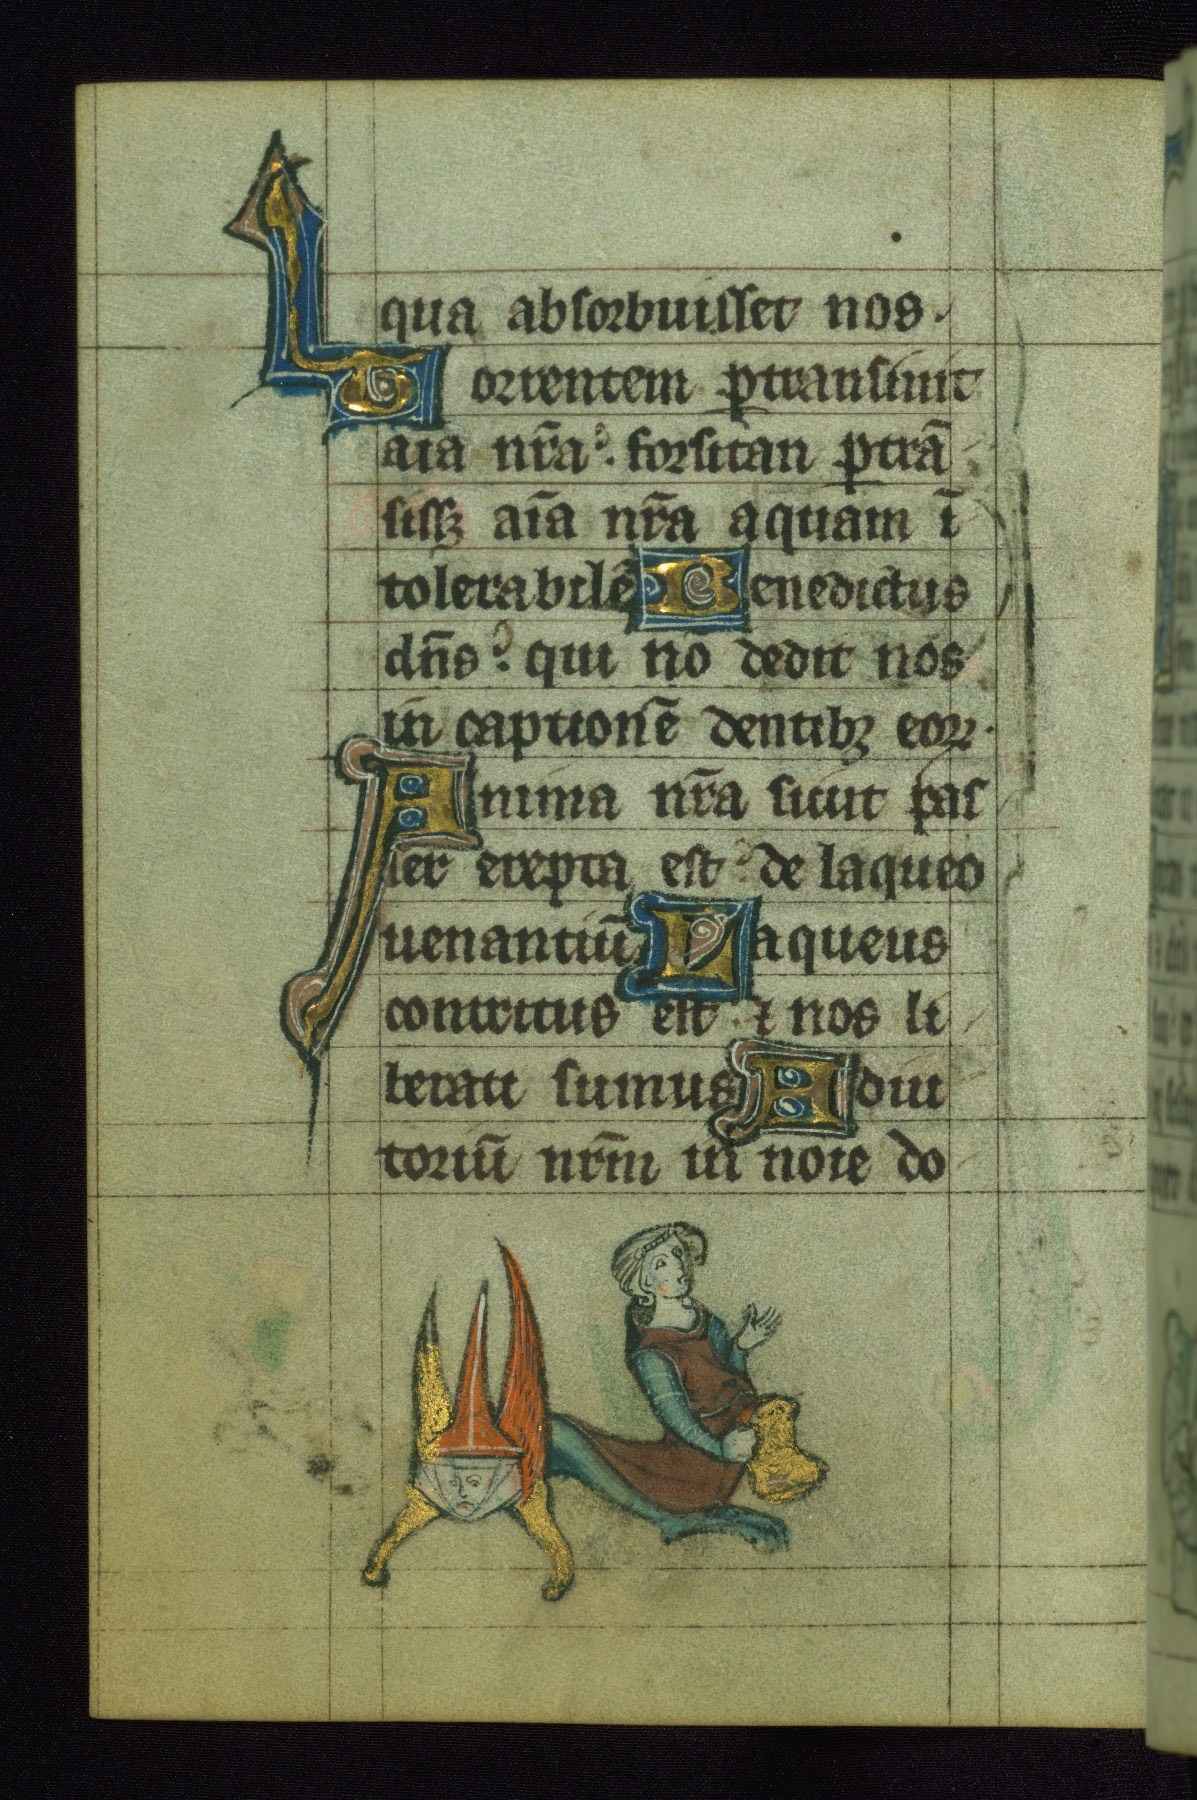 qua absorbuisset nos.
Torrentem ꝑtransiuit
aĩa nr̃a: forsitan ꝑtrã
sissꝫ aĩa nr̃a aquam ĩ
tolerabilẽ Benedictus
dñs: qui nõ dedit nos
in captionẽ dentibꝫ eoꝝ.
Anima nr̃a sicut pas
ser erepta est: de laqueo
uenantiũ Laqueus
contritus est: ⁊ nos li
berati sumus Adiu
toriũ nr̃m in noı̃e do